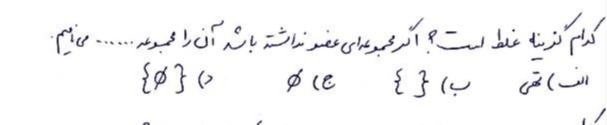 کدام گزینه غلط است؟ اگر مجموعه‌ای عضو نداشته باشد آن را مجموعه ...... می‌نامیم.
الف) تهی ب) { } ج) ∅ د) {∅}